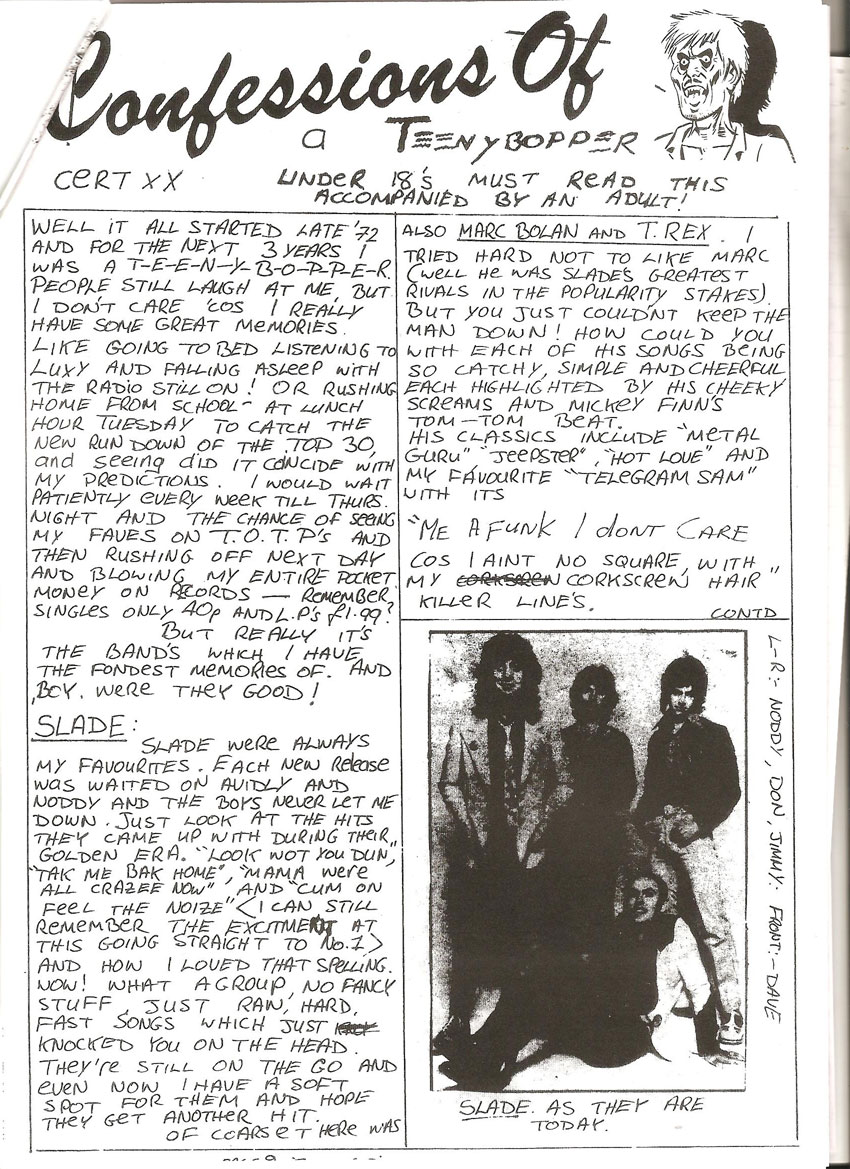 Confessions Of
a TEENYBOPPER
CERT XX
UNDER 18's MUST READ THIS
ACCOMPANIED BY AN ADULT!
WELL IT ALL STARTED LATE '72
AND FOR THE NEXT 3 YEARS I
WAS A T-E-E-N-Y-B-O-P-P-E-R.
PEOPLE STILL LAUGH AT ME, BUT
I DON'T CARE 'COS I REALLY
HAVE SOME GREAT MEMORIES.
LIKE GOING TO BED LISTENING TO
LUXY AND FALLING ASLEEP WITH
THE RADIO STILL ON! OR RUSHING
HOME FROM SCHOOL- AT LUNCH
HOUR TUESDAY TO CATCH THE
NEW RUN DOWN OF THE TOP 30,
and seeing did IT COINCIDE WITH
MY PREDICTIONS. I WOULD WAIT
PATIENTLY EVERY WEEK TILL THURS.
NIGHT AND THE CHANCE OF SEEING
MY FAVES ON T.O.T.P's AND
THEN RUSHING OFF NEXT DAY
AND BLOWING MY ENTIRE POCKET
MONEY ON RECORDS — REMEMBER
SINGLES ONLY 40p AND L.P's £1.99?
BUT REALLY IT'S
THE BAND'S WHICH I HAVE
THE FONDEST MEMORIES OF. AND
BOY. WERE THEY GOOD!
SLADE:
SLADE WERE ALWAYS
MY FAVOURITES. EACH NEW Release
WAS WAITED ON AVIDLY AND
NODDY AND THE BOYS NEVER LET ME
DOWN. JUST LOOK AT THE HITS
THEY CAME UP WITH DURING THEIR
GOLDEN ERA. "LOOK WOT YOU DUN,"
"TAK ME BAK HOME", "MAMA WERE
ALL CRAZEE NOW" AND "CUM ON
FEEL THE NOIZE" <I CAN STILL
REMEMBER THE EXCITMENT AT
THIS GOING STRAIGHT TO No.1>
AND HOW I LOVED THAT SPELLING.
NOW! WHAT A GROUP, NO FANCY
STUFF, JUST RAW, HARD,
FAST SONGS WHICH JUST
KNOCKED YOU ON THE HEAD.
THEY'RE STILL ON THE GO AND
EVEN NOW I HAVE A SOFT
SPOT FOR THEM AND HOPE
THEY GET ANOTHER HIT.
OF COARSE THERE WAS
ALSO MARC BOLAN AND T.REX. I
TRIED HARD NOT TO LIKE MARC
(WELL HE WAS SLADE'S GREATEST
RIVALS IN THE POPULARITY STAKES).
BUT YOU JUST COULDN'T KEEP THE
MAN DOWN! HOW COULD YOU
WITH EACH OF HIS SONGS BEING
SO CATCHY, SIMPLE AND CHEERFUL
EACH HIGHLIGHTED BY HIS CHEEKY
SCREAMS AND MICKEY FINN'S
TOM-TOM BEAT.
HIS CLASSICS INCLUDE "METAL
GURU" "JEEPSTER", "HOT LOVE" AND
MY FAVOURITE "TELEGRAM SAM"
WITH ITS
"ME A FUNK I DONT CARE
COS I AINT NO SQUARE, WITH
MY CORKSCREW HAIR"
KILLER LINE'S.
CONTD
L-R:- NODDY, DON, JIMMY. FRONT:- DAVE
SLADE. AS THEY ARE
TODAY.